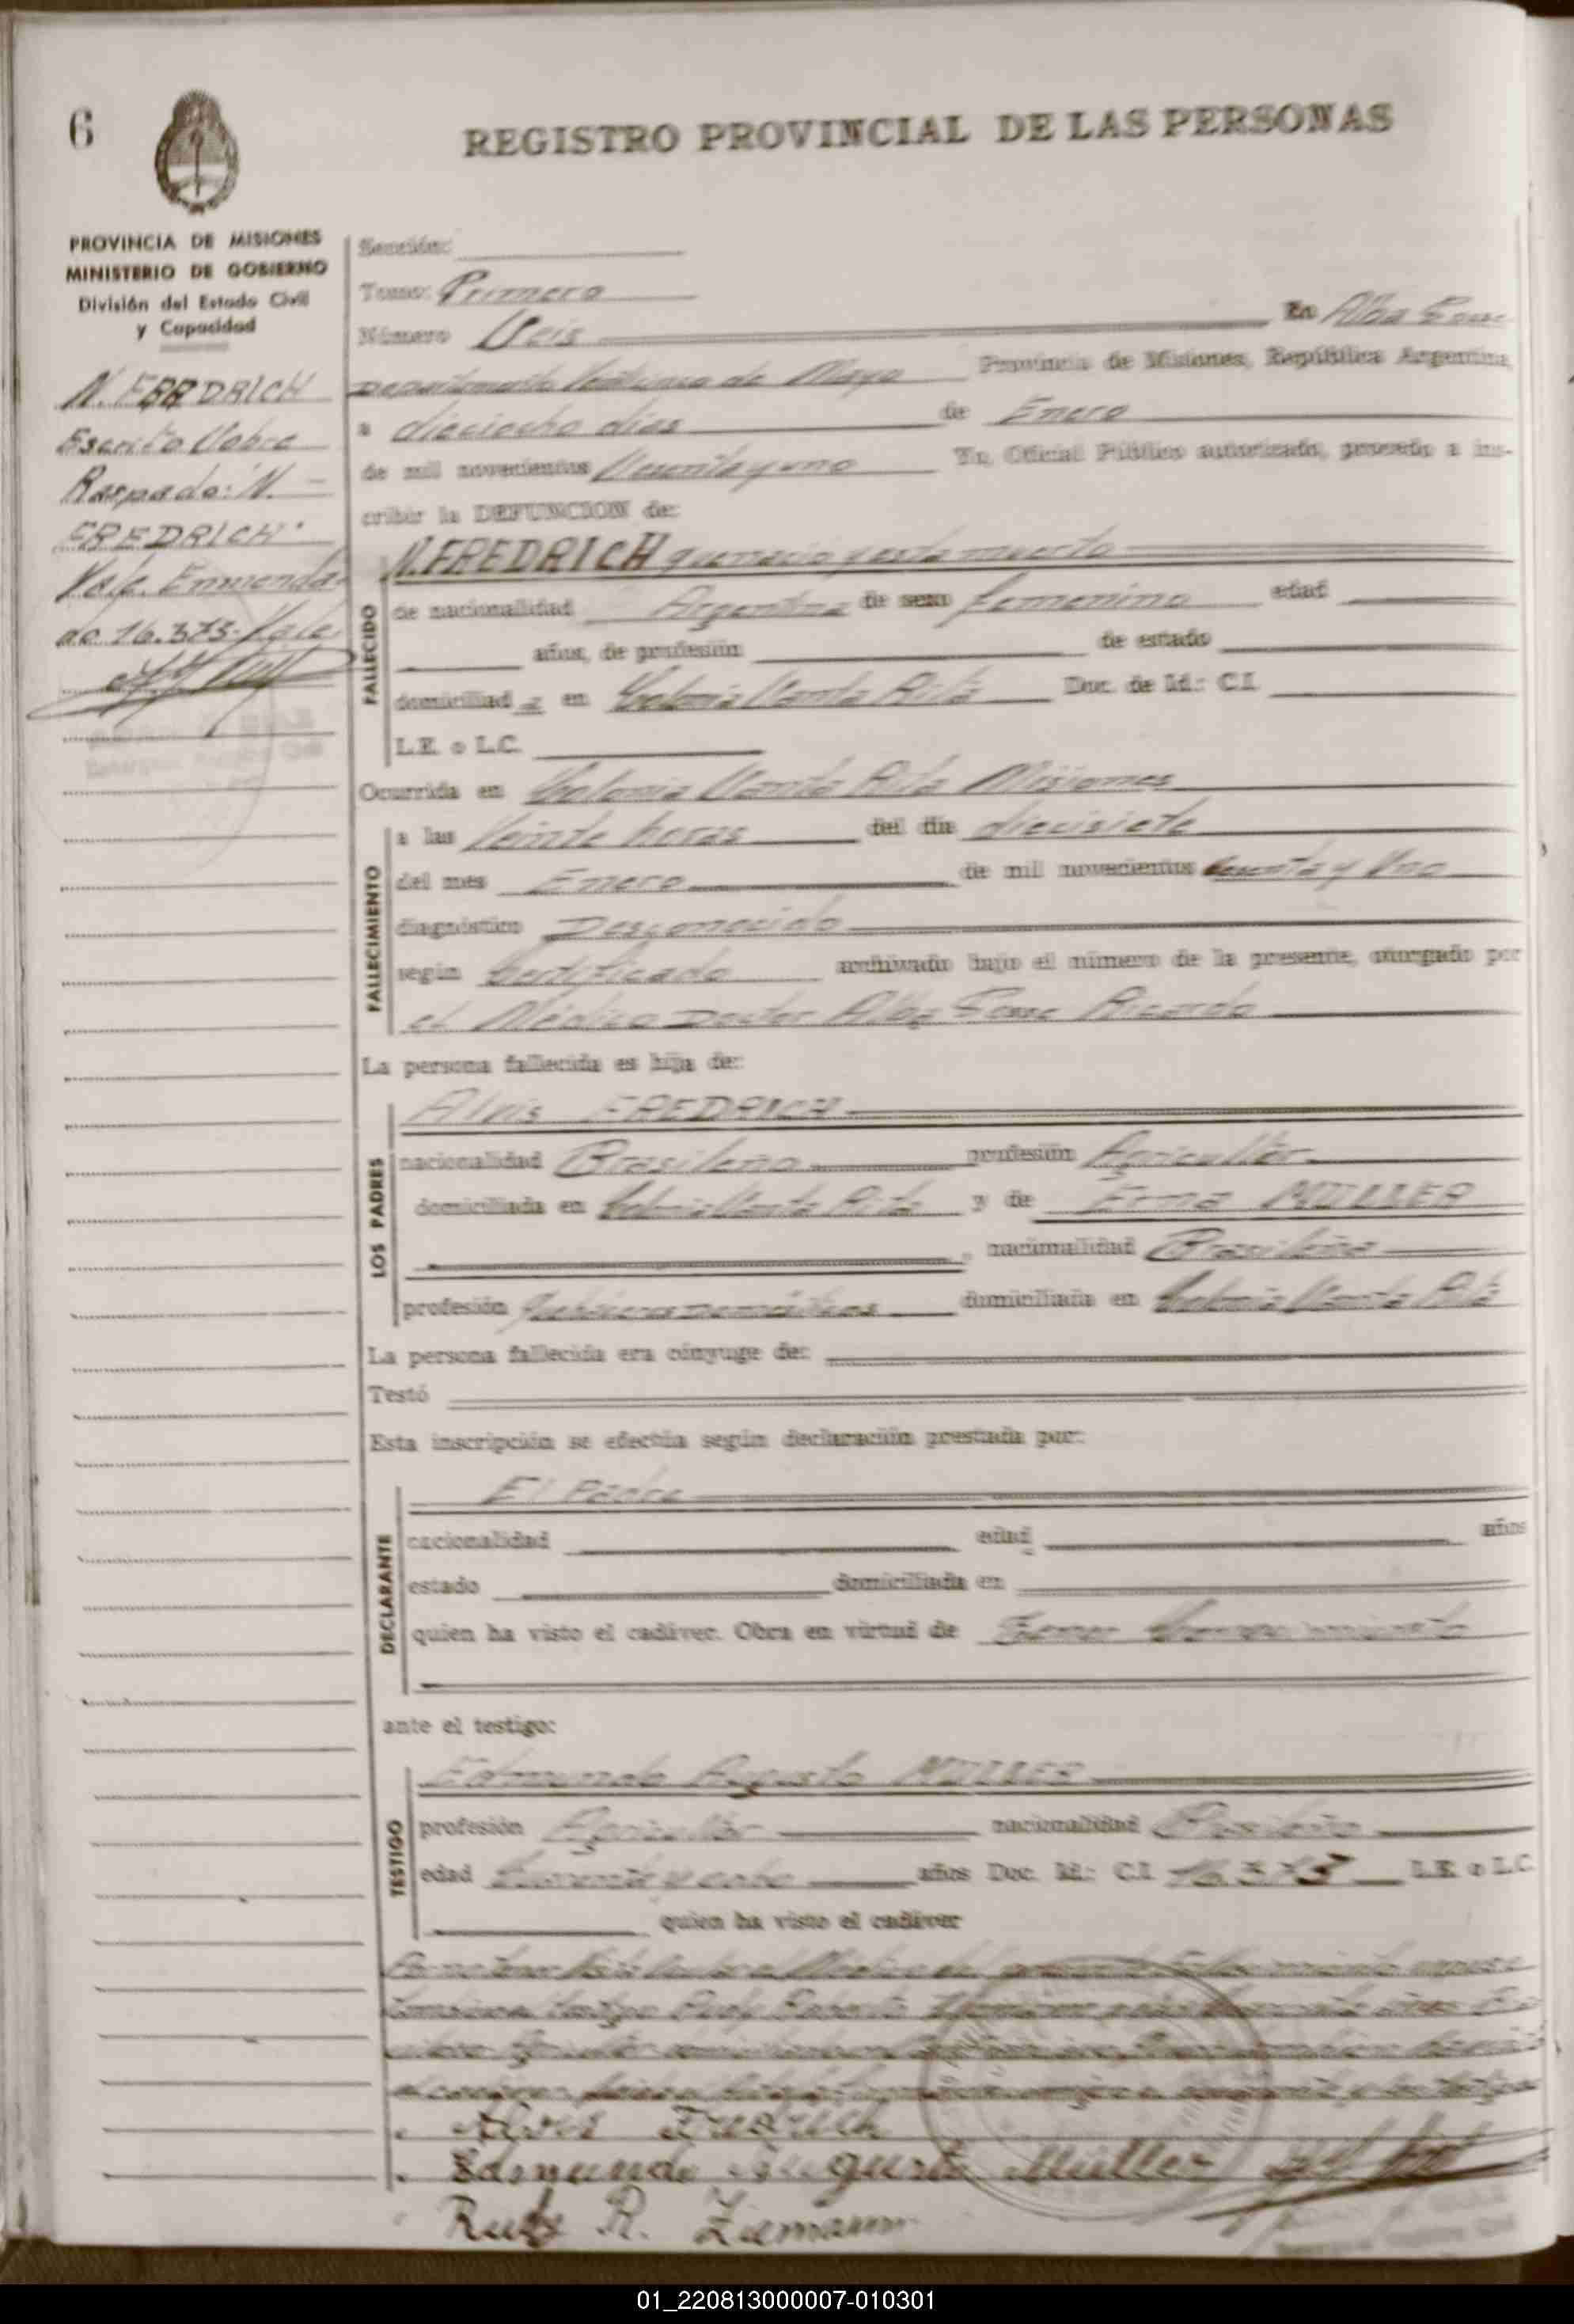 6
REGISTRO PROVINCIAL DE LAS PERSONAS
PROVINCIA DE MISIONES
MINISTERIO DE GOBIERNO
División del Estado Civil
y Capacidad
N. FREDRICH
Escrito Sobre
Raspado: N. -
FREDRICH
Vale. Enmenda-
do 16.373. Vale
Sección:
Tomo: Primero
Número Seis
En Alba Posse
Departamento Veinticinco de Mayo Provincia de Misiones, República Argentina,
a dieciocho días de Enero
de mil novecientos sesenta y uno Yo, Oficial Público autorizado, procedo a ins-
cribir la DEFUNCION de:
N. FREDRICH que nacio y esta muerto
FALLECIDO
de nacionalidad Argentina de sexo femenino edad
años, de profesión de estado
domiciliad a en Colonia Santa Rita Doc. de Id.: C.I.
L.E. o L.C.
Ocurrida en Colonia Santa Rita Misiones
FALLECIMIENTO
a las Veinte horas del día diecisiete
del mes Enero de mil novecientos sesenta y Uno
diagnóstico Desconocido
según Certificado archivado bajo el número de la presente, otorgado por
el Médico Doctor Alba Posse Ricardo
La persona fallecida es hija de:
LOS PADRES
Alvis FREDRICH
nacionalidad Brasileño profesión Agricultor
domiciliado en Colonia Santa Rita y de Erna MULLER
, nacionalidad Brasileña
profesión Quehaceres Domésticos domiciliada en Colonia Santa Rita
La persona fallecida era cónyuge de:
Testó
Esta inscripción se efectúa según declaración prestada por:
DECLARANTE
El Padre
nacionalidad edad años
estado domiciliada en
quien ha visto el cadáver. Obra en virtud de
ante el testigo:
TESTIGO
Edmundo Augusto MULLER
profesión Agricultor nacionalidad Brasileño
edad y ocho años Doc. Id.: C.I. 16.373 L.E. o L.C.
quien ha visto el cadáver
Alvis Fredrich
Edmundo Augusto Müller
Rudy R. Ziemann
01_220813000007-010301